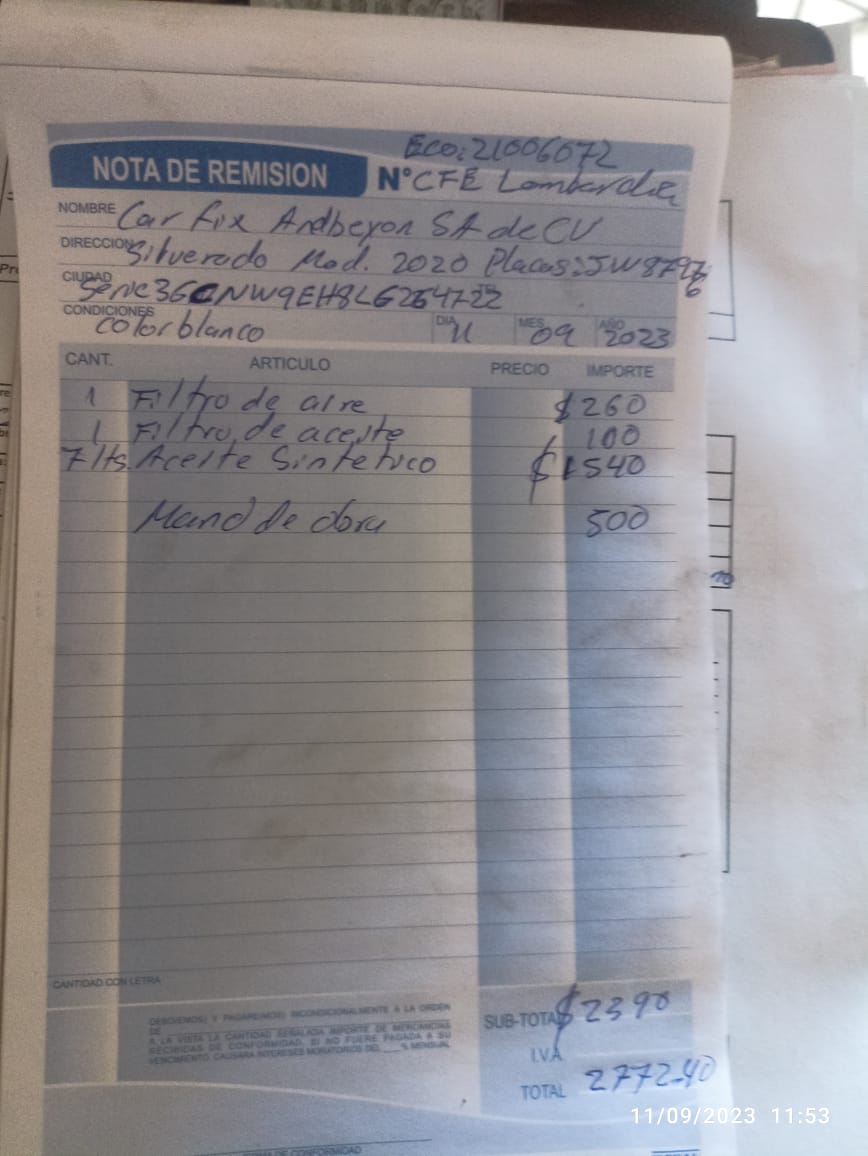 Eco: 21006072
NOTA DE REMISION
N° CFE Lombardia
NOMBRE Car fix Andbeyon SA de CV
DIRECCION Silverado Mod. 2020 Placas: JW87976
CIUDAD Serie 3GCNW9EH8LG264722
CONDICIONES color blanco DIA 11 MES 09 AÑO 2023
CANT. ARTICULO PRECIO IMPORTE
1 Filtro de aire $260
1 Filtro de aceite 100
7 lts. Aceite Sintetico $1540
Mano de obra 500
CANTIDAD CON LETRA
DEBO(EMOS) Y PAGARE(MOS) INCONDICIONALMENTE A LA ORDEN
DE
A LA VISTA LA CANTIDAD SEÑALADA IMPORTE DE MERCANCIAS
RECIBIDAS DE CONFORMIDAD. SI NO FUERE PAGADA A SU
VENCIMIENTO, CAUSARA INTERESES MORATORIOS DEL ___% MENSUAL
SUB-TOTAL $2390
I.V.A
TOTAL 2772.40
11/09/2023 11:53
FIRMA DE CONFORMIDAD